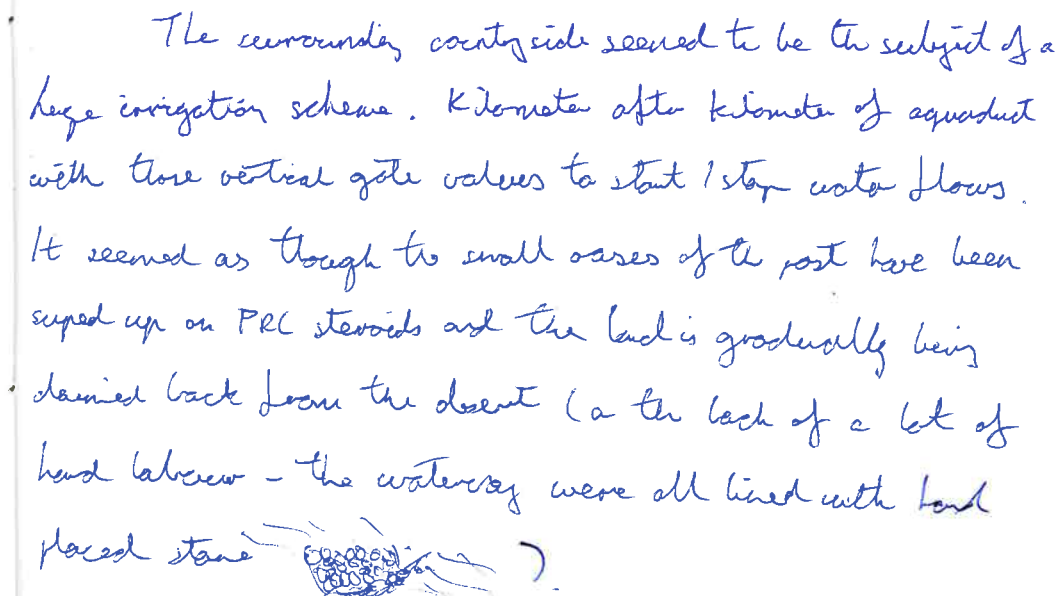 The surrounding countryside seemed to be the subject of a
huge irrigation scheme. Kilometer after kilometer of aquaduct
with those vertical gate valves to start / stop water flows.
It seemed as though the small oases of the past have been
suped up on PRC steroids and the land is gradually being
claimed back from the desert (on the back of a lot of
hard labour - the waterway were all lined with hand
placed stone ).